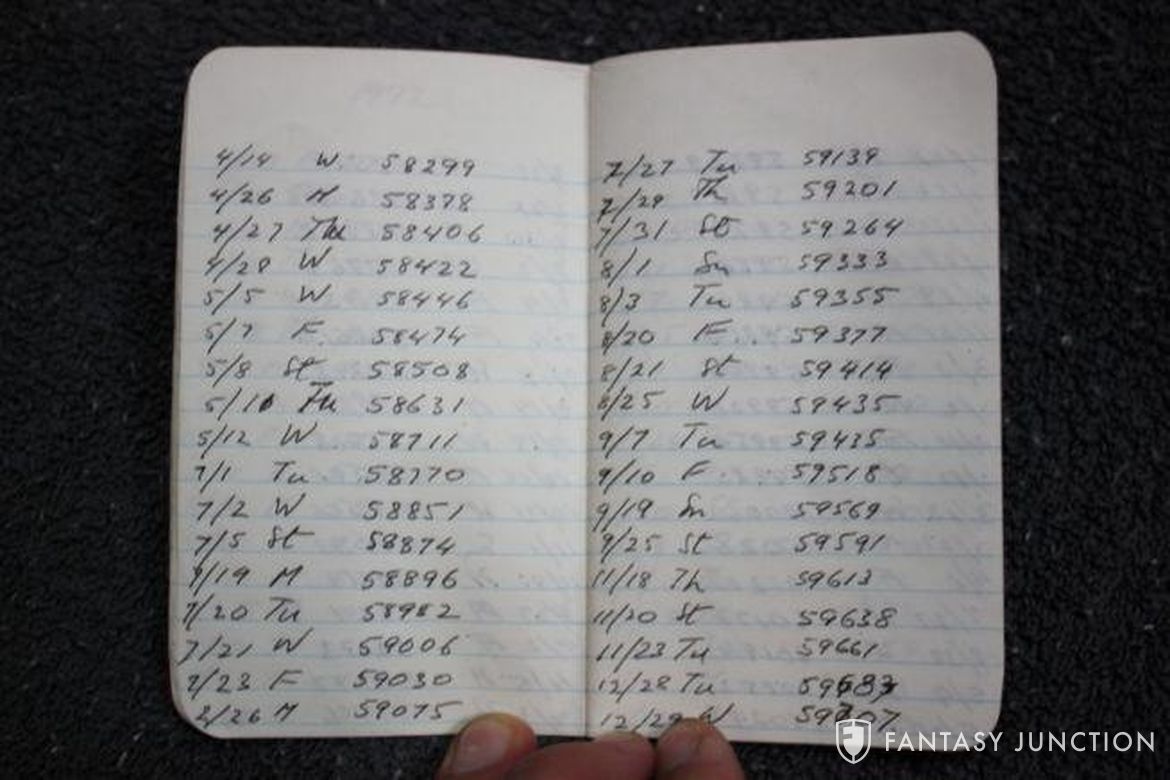 4/14 W. 58299
4/26 M 58378
4/27 Tu 58406
4/28 W 58422
5/5 W 58446
5/7 F. 58474
5/8 St 58508
5/10 Tu 58631
5/12 W 58711
7/1 Tu. 58770
7/2 W 58851
7/5 St 58874
7/19 M 58896
7/20 Tu 58982
7/21 W 59006
7/23 F 59030
7/26 M 59075
7/27 Tu 59139
7/29 Th 59201
7/31 St 59264
8/1 Sn 59333
8/3 Tu 59355
8/20 F. 59377
8/21 St 59414
8/25 W 59435
9/7 Tu 59435
9/10 F 59518
9/19 Sn 59569
9/25 St 59591
11/18 Th 59613
11/20 St 59638
11/23 Tu 59661
12/28 Tu 59683
12/29 W 59707
FANTASY JUNCTION